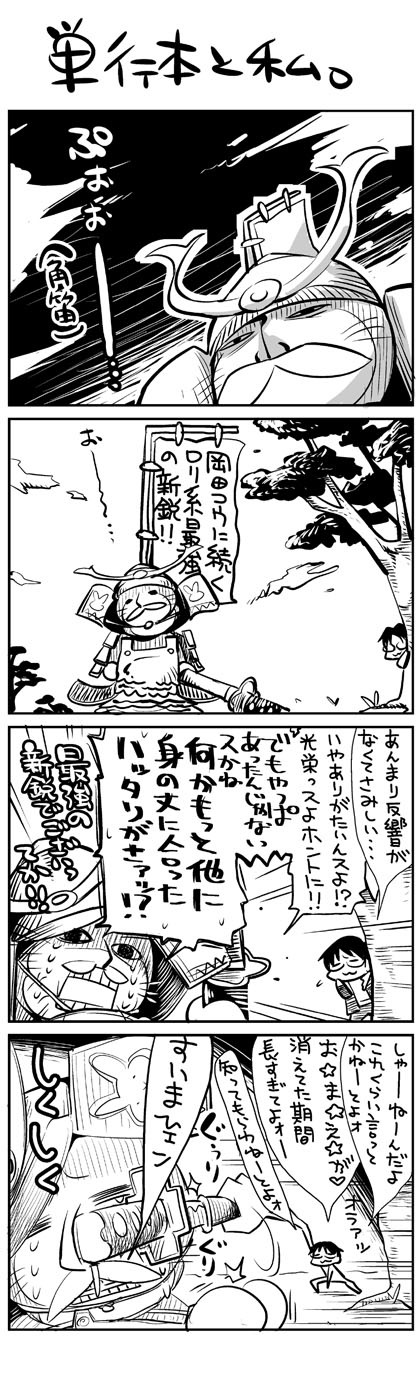 単行本と私。
ぷおお
ーー…
(角笛)
岡田コウに続く
ロリ系最強
の新鋭!!
お…
あんまり反響が
なくてさみしい…
いやありがたいんスよ!?
光栄っスよホントに!!
でもやっぱ
あったんじゃないスかね
何かもっと他に
身の丈に合った
ハッタリがさァッ?!
最強の
新鋭でござい
しゃーねーんだよ
これくらい言っと
かねーとよォ
お☆ま☆え☆が♡
消えてた期間
長すぎてよォー
知ってもらわねーとよォ
オラァッ
すいまひェン
ぐっり
ぐり
しくしく